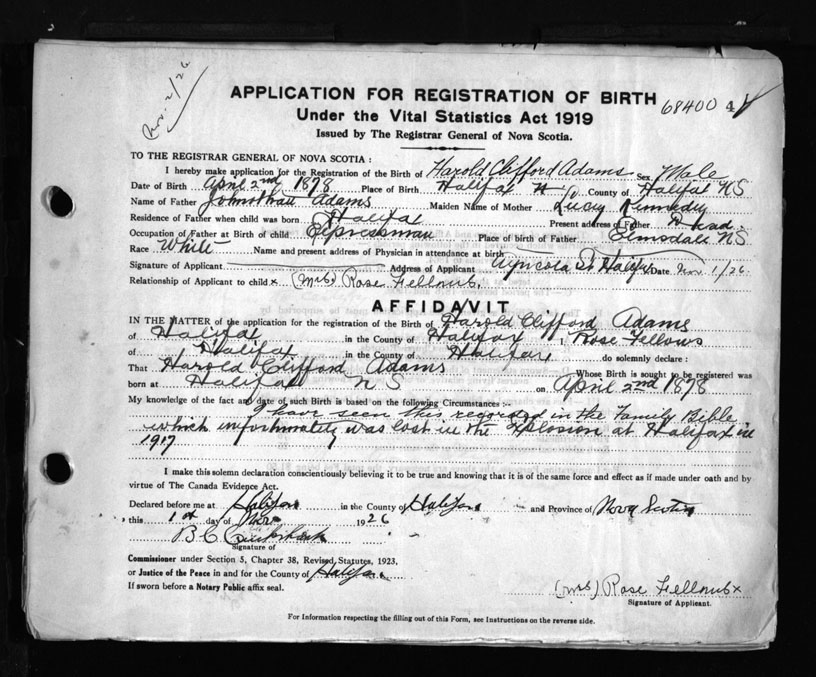 Nov. 2/26
APPLICATION FOR REGISTRATION OF BIRTH 68400
Under the Vital Statistics Act 1919
Issued by The Registrar General of Nova Scotia.
TO THE REGISTRAR GENERAL OF NOVA SCOTIA :
I hereby make application for the Registration of the Birth of Harold Clifford Adams Sex Male
Date of Birth April 2nd 1878 Place of Birth Halifax County of Halifax NS
Name of Father Johnathan Adams Maiden Name of Mother Lucy Kennedy
Residence of Father when child was born Halifax Present address of Father Dead
Occupation of Father at Birth of child Expressman Place of birth of Father Elmsdale NS
Race White Name and present address of Physician in attendance at birth
Signature of Applicant Address of Applicant Agricola St Halifax Date Nov 1/26
Relationship of Applicant to child x (Mrs) Rose Fellows
AFFIDAVIT
IN THE MATTER of the application for the registration of the Birth of Harold Clifford Adams
of Halifax in the County of Halifax I, Rose Fellows
of Halifax in the County of Halifax do solemnly declare :
That Harold Clifford Adams Whose Birth is sought to be registered was
born at Halifax N S on April 2nd 1878
My knowledge of the fact and date of such Birth is based on the following Circumstances :-
I have seen this recorded in the Family Bible
which unfortunately was lost in the Xplosion at Halifax in
1917
I make this solemn declaration conscientiously believing it to be true and knowing that it is of the same force and effect as if made under oath and by
virtue of The Canada Evidence Act.
Declared before me at Halifax in the County of Halifax and Province of Nova Scotia
this 1st day of Nov 1926
B C
Signature of
Commissioner under Section 5, Chapter 38, Revised Statutes, 1923,
or Justice of the Peace in and for the County of Halifax
If sworn before a Notary Public affix seal.
(Mrs) Rose Fellows x
Signature of Applicant.
For Information respecting the filling out of this Form, see Instructions on the reverse side.